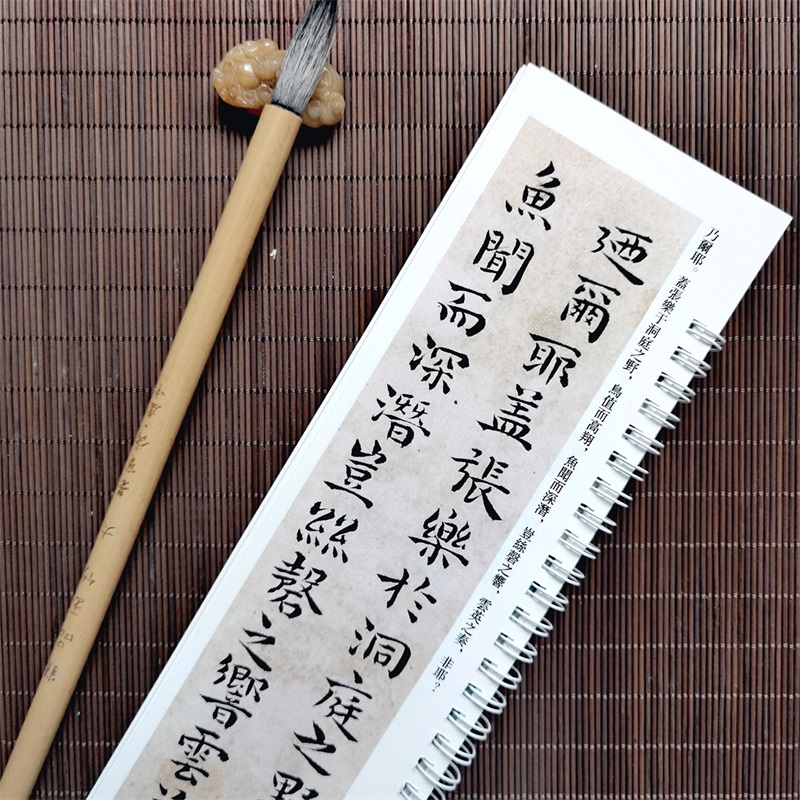 乃爾耶。蓋張樂于洞庭之野,鳥值而高翔,魚聞而深潛,豈絲磬之響,雲英之奏,非耶?
迺爾耶盖張樂於洞庭之野
魚聞而深潛豈絲磬之響雲